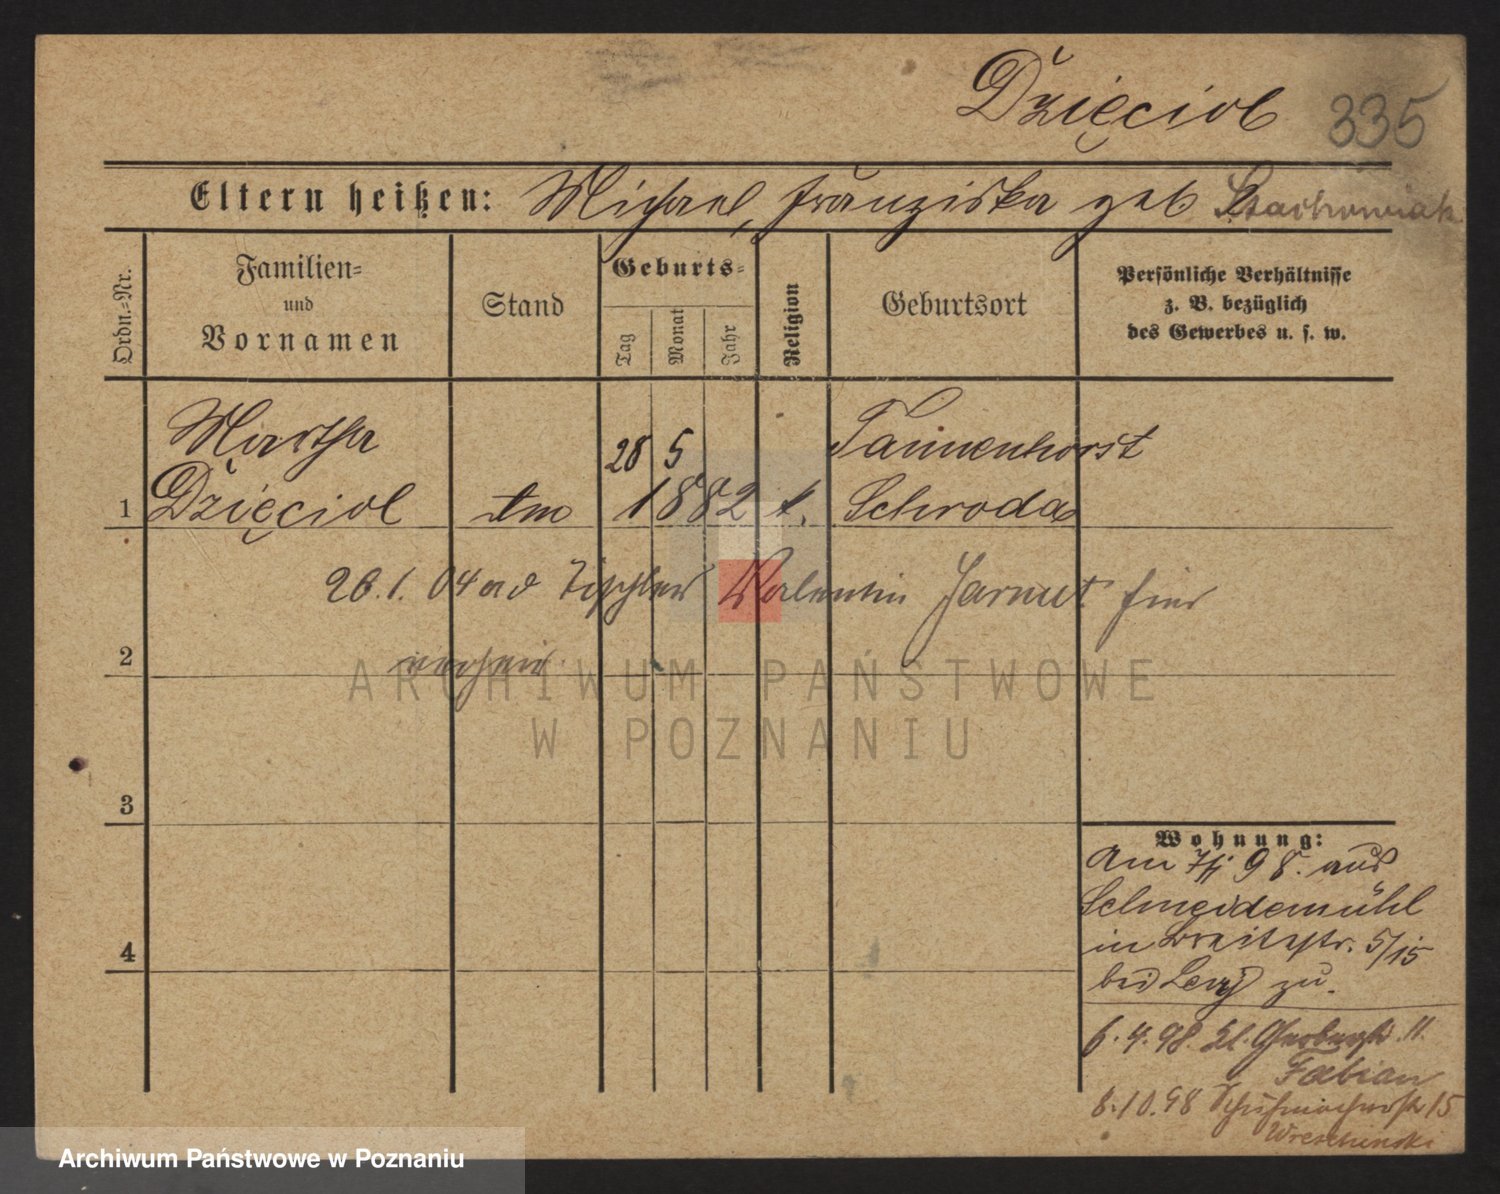 Dzięciol 335
Eltern heißen: Michael, Franziska geb Stachowiak
Ordn.-Nr.
Familien-
und
Vornamen
Stand
Geburts-
Tag
Monat
Jahr
Religion
Geburtsort
Persönliche Verhältnisse
z. B. bezüglich
des Gewerbes u. s. w.
Martha
28 5
Tannenhorst
1 Dzięciol
1882 k. Schroda
26.1.04 Tischler Valentin Jarmut hier
2
3
4
Wohnung:
Am 98. aus
Schneidemühl
in Breitestr. 5/15
bei Levy zu.
6.4.98. 11.
Fabian
8.10.98 15
Wreschinski
ARCHIWUM PAŃSTWOWE
W POZNANIU
Archiwum Państwowe w Poznaniu